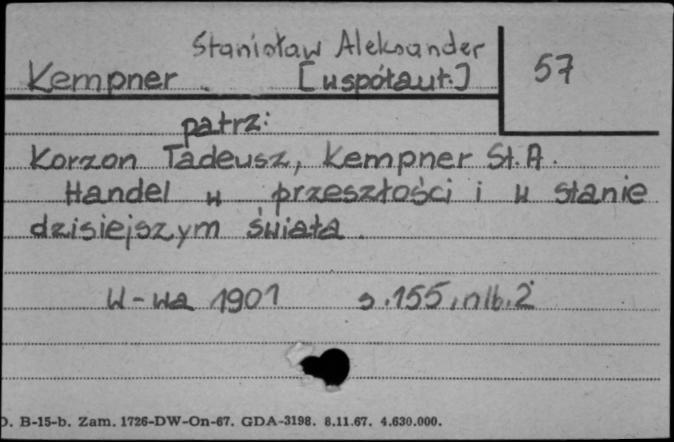 Stanisław Aleksander
Kempner [współaut.] 57
patrz:
Korzon Tadeusz, Kempner St. A.
Handel w przeszłości i w stanie
dzisiejszym świata.
W-wa 1901 s. 155, nlb. 2
D. B-15-b. Zam. 1726-DW-On-67. GDA-3198. 8.11.67. 4.630.000.